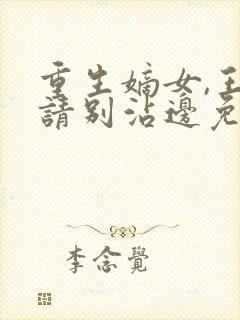 重生嫡女,王
請別沾邊免
李念覺